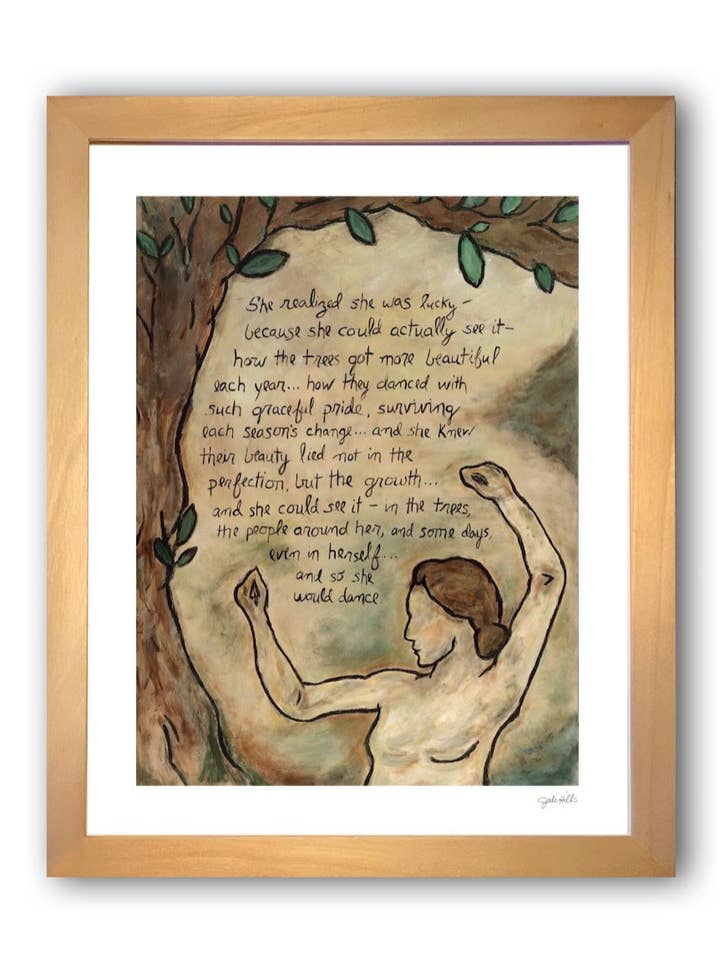 She realized she was lucky –
because she could actually see it –
how the trees got more beautiful
each year... how they danced with
such graceful pride, surviving
each season's change... and she knew
their beauty lied not in the
perfection, but the growth...
and she could see it – in the trees,
the people around her, and some days,
even in herself...
and so she
would dance.